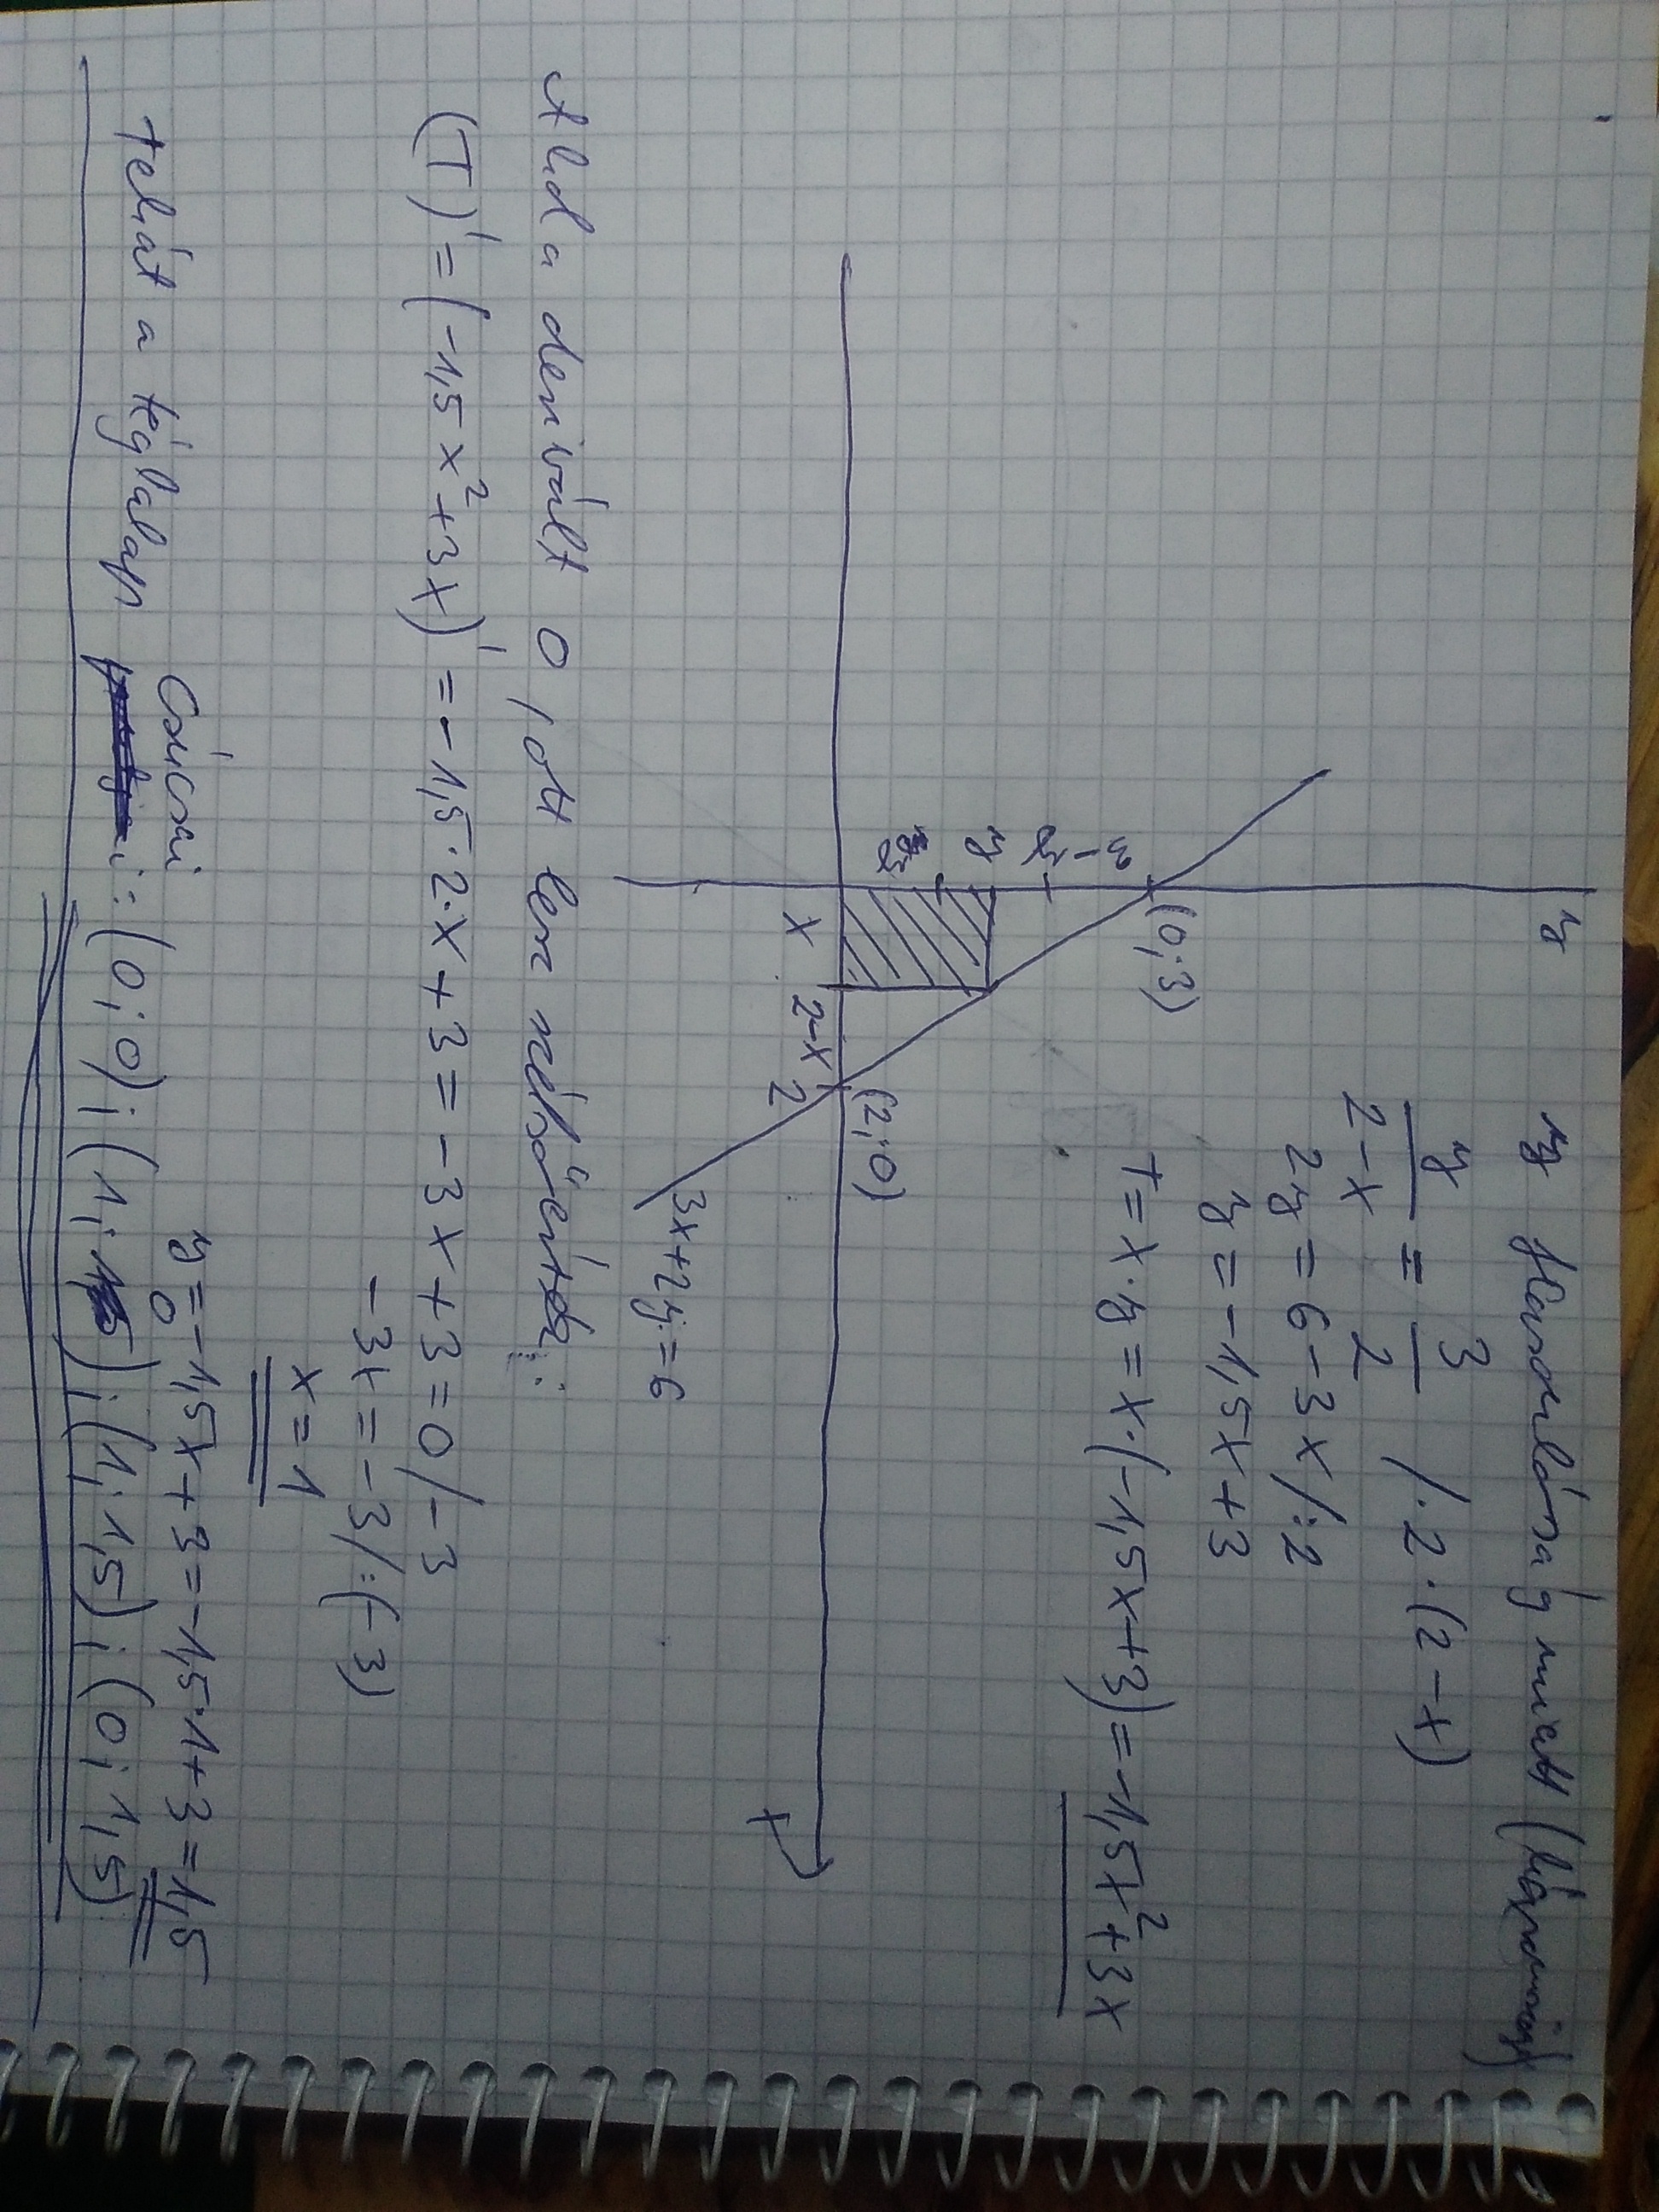 y
y Hasonlóság miatt (háromszög)
y/(2-x) = 3/2 /·2·(2-x)
2y = 6-3x /:2
y = -1,5x+3
T = x·y = x·(-1,5x+3) = -1,5x²+3x
(0;3)
3
y
(2;0)
x
2-x
2
x
3x+2y=6
Ahol a derivált 0, ott lesz szélsőérték:
(T)' = (-1,5x²+3x)' = -1,5·2·x+3 = -3x+3 = 0 /-3
-3x = -3 /:(-3)
x = 1
y = -1,5x+3 = -1,5·1+3 = 1,5
Csúcsai
Tehát a téglalap : (0;0) ; (1;0) ; (1;1,5) ; (0;1,5)